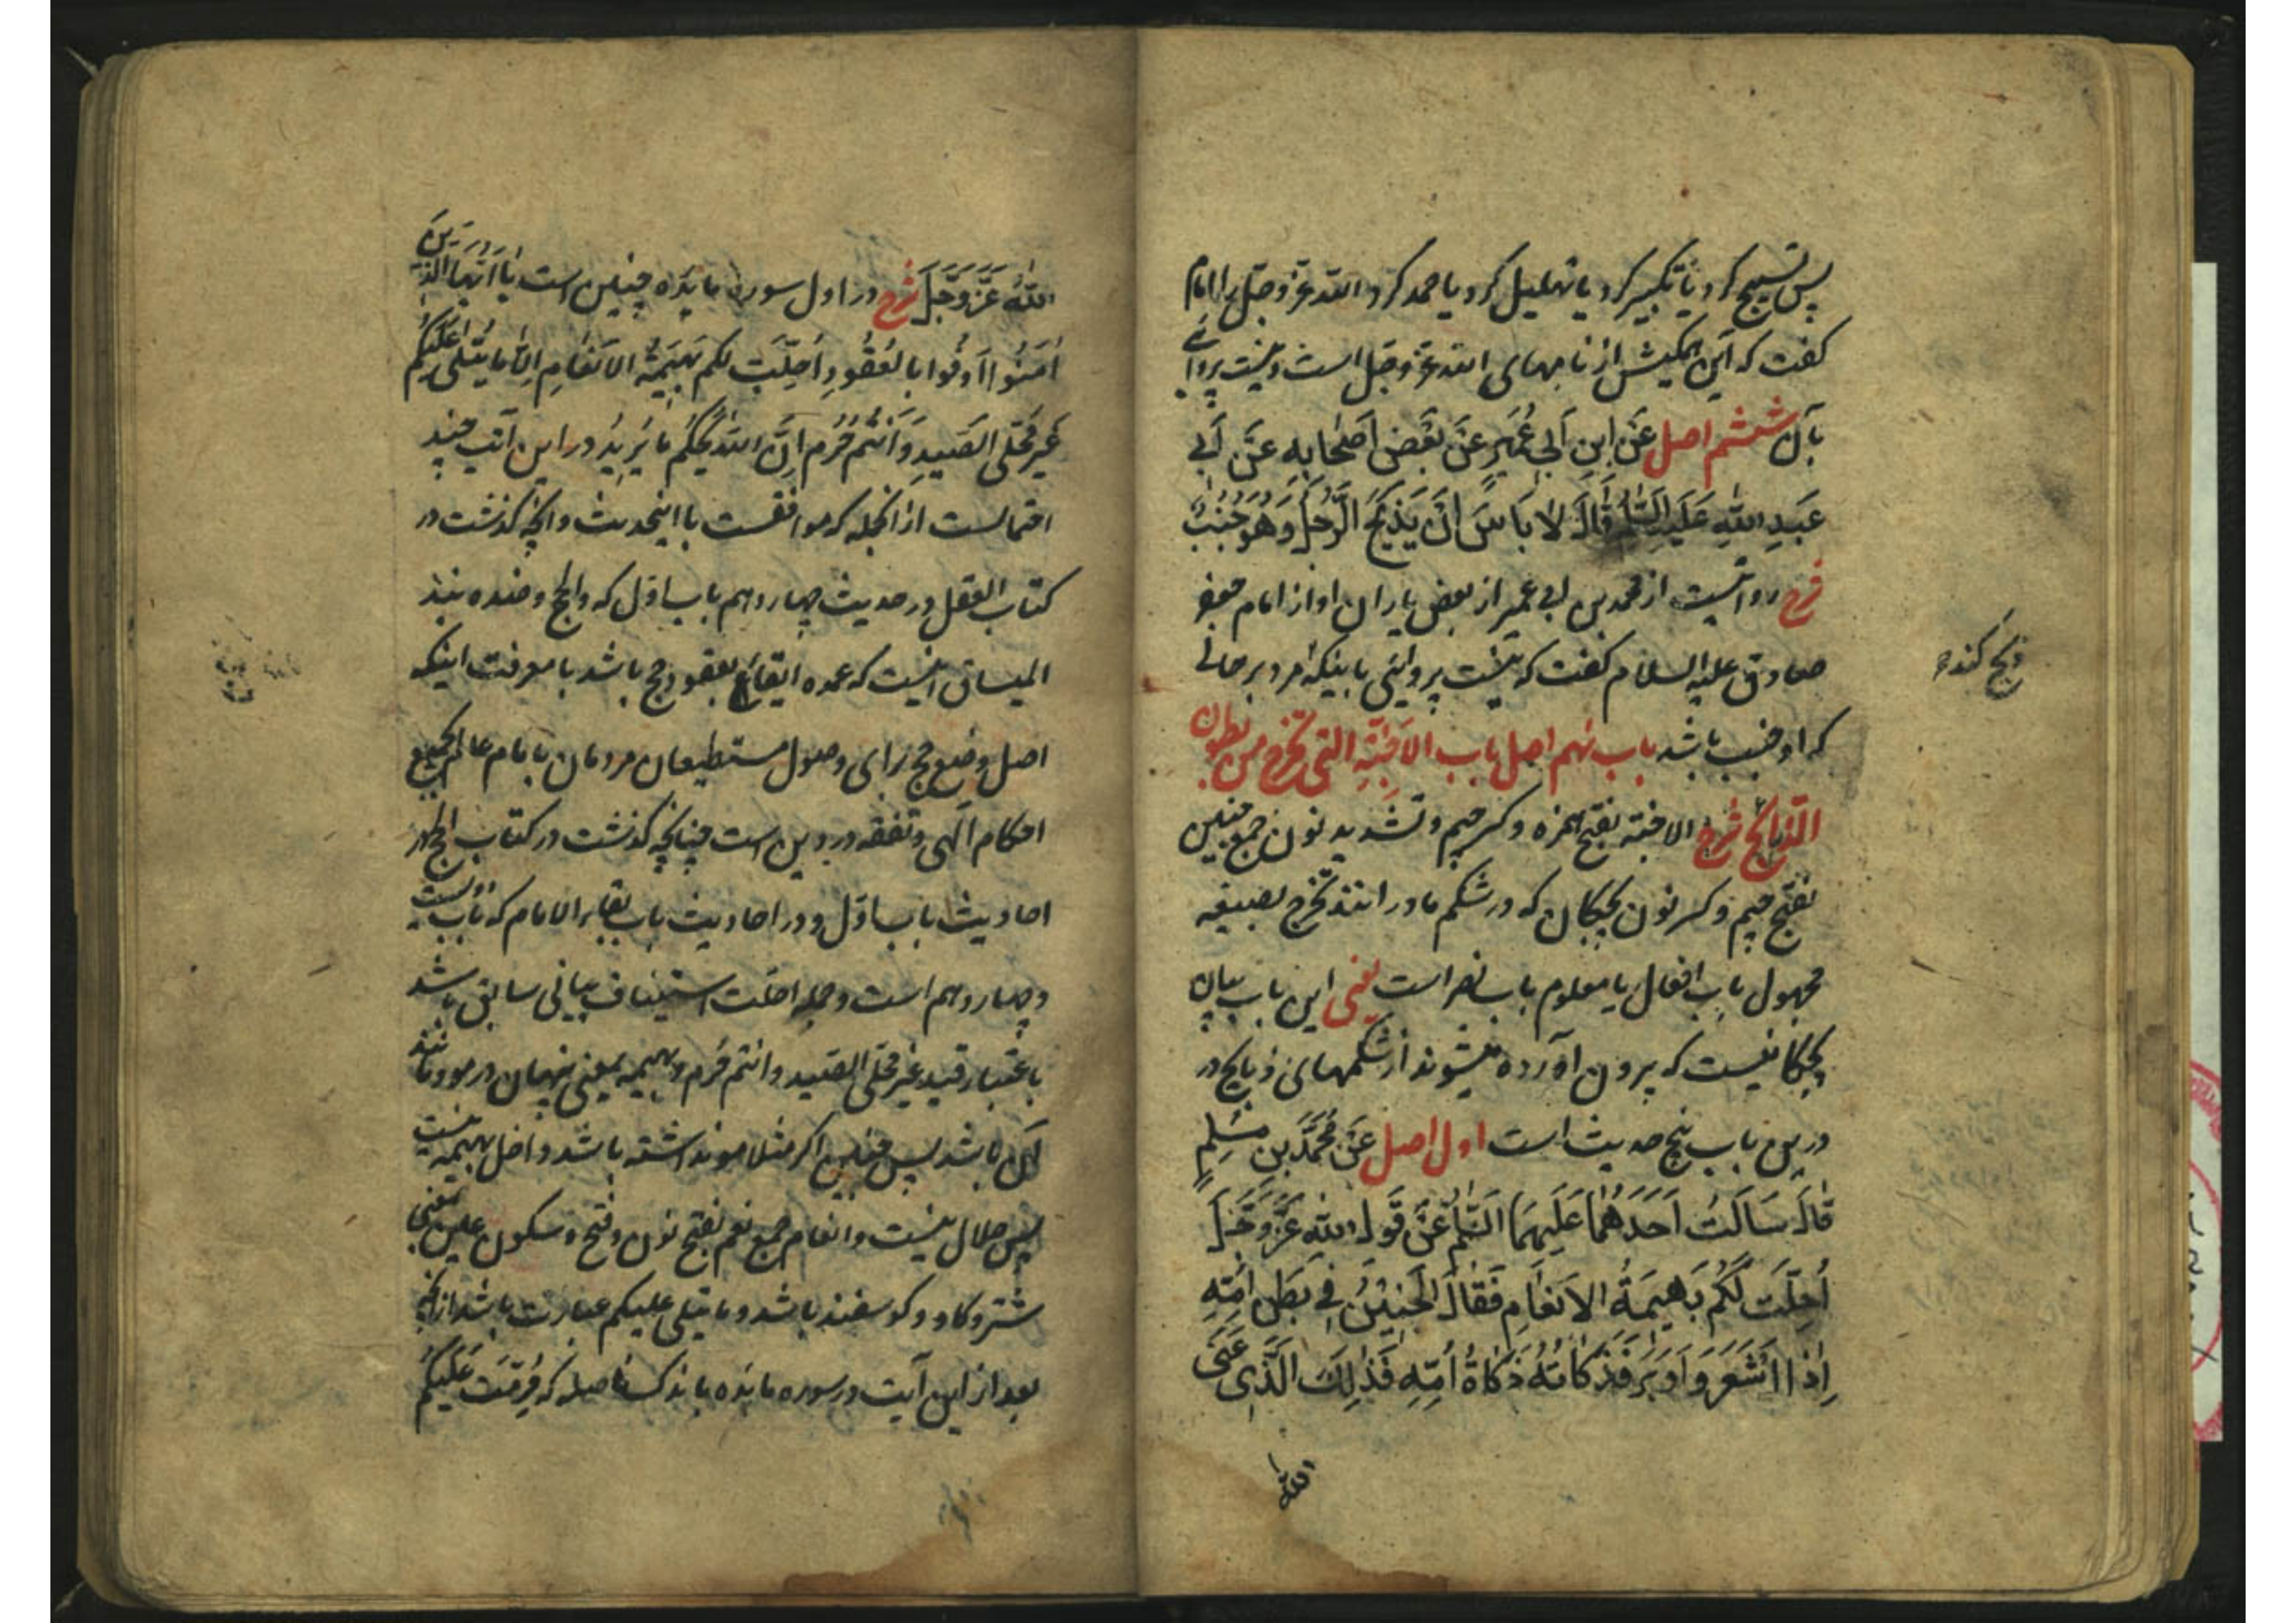 پس تسبیح کرد یا تکبیر کرد یا تهلیل کرد یا حمد کرد الله عز و جل را امام
کفت که این همکیش از نامهای الله عز و جل است و نیست پروائی
بآن ششم اصل عَنِ ابنِ اَبی عُمَیرٍ عَنْ بَعْضِ اَصْحَابِهِ عَنْ اَبی
عَبدِ اللهِ عَلَیهِ السَّلم قَالَ لا بَاسَ اَنْ یَذبَحَ الرَّجُلُ وَهُوَ جُنُبٌ
شرح روایتست از محمد بن ابی عمیر از بعض یاران او از امام جعفر
صادق علیه السلام کفت که نیست پروائی باینکه مرد بر حالی
ذبح کند
که او جنب باشد باب نهم اصل باب الاَجِنَّةِ التی تخرج من بطون
الذبایح شرح الاجنة بفتح همزه و کسر جیم و تشدید نون جمع جنین
بفتح جیم و کسر نون بچکان که در شکم مادر انند تخرج بصیغه
مجهول باب افعال یا معلوم باب نصر است یعنی این باب بیان
بچکانیست که برون آورده میشوند از شکمهای ذبایح در
درین باب پنج حدیث است اول اصل عَنْ مُحَمَّدِ بنِ مُسْلِمٍ
قَالَ سَالتُ اَحَدَهُمَا عَلَیهِمَا السَّلمُ عَنْ قَولِ اللهِ عَزَّ وَجَلَّ
اُحِلَّت لَکُم بَهیمَةُ الاَنعَامِ فَقَالَ الجَنِینُ فِی بَطنِ اُمِّهِ
اِذَا اَشْعَرَ وَ اَوبَرَ فَذَکَاتُهُ ذَکَاةُ اُمِّهِ فَذلِكَ الَّذِی عَنَی
الله
اللهُ عَزَّ وَجَلَّ شرح در اول سوره مایده چنین است یا اَیُّهَا الذینَ
امَنُوا اَوفُوا بالعُقُودِ اُحِلَّت لکم بَهیمَةُ الاَنعَامِ اِلّا مَا یُتلی عَلَیکُم
غَیرَ مُحِلّی الصَیدِ وَ اَنتُم حُرُم اِنَّ اللهَ یَحکُمُ مَا یُرِیدُ در این آیت چند
احتمالست از انجمله که موافقست با اینحدیث و انچه گذشت در
کتاب العقل در حدیث چهاردهم باب اوّل که و الحج و ضده نبذ
المیساق اینست که عمده ایقاع بعقود حج باشد با معرفت اینکه
اصل وضع حج برای وصول مستطیعان مردمان بامام عالم بجمیع
احکام الهی و تفقه در دین است چنانچه گذشت در کتاب الحج در
احادیث باب اوّل و در احادیث باب لقاء الامام که باب بیست
و چهاردهم است و جمله احلت استیناف بیانی سابق باشد
باعتبار قید غیر محلی الصید و انتم حُرم و بهیمه بمعنی پنهان در مو و مانند
آن باشد پس جنین اگر مثلا مو نداشته باشد داخل بهیمه نیست
پس حلال نیست و انعام جمع نعم بفتح نون و فتح و سکون عین بمعنی
شتر و کاو و کوسفند باشد و ما یتلی علیکم عبارت باشد از انچه
بعد از این آیت در سوره مایده باندک فاصله که حُرِّمَت عَلَیکُم